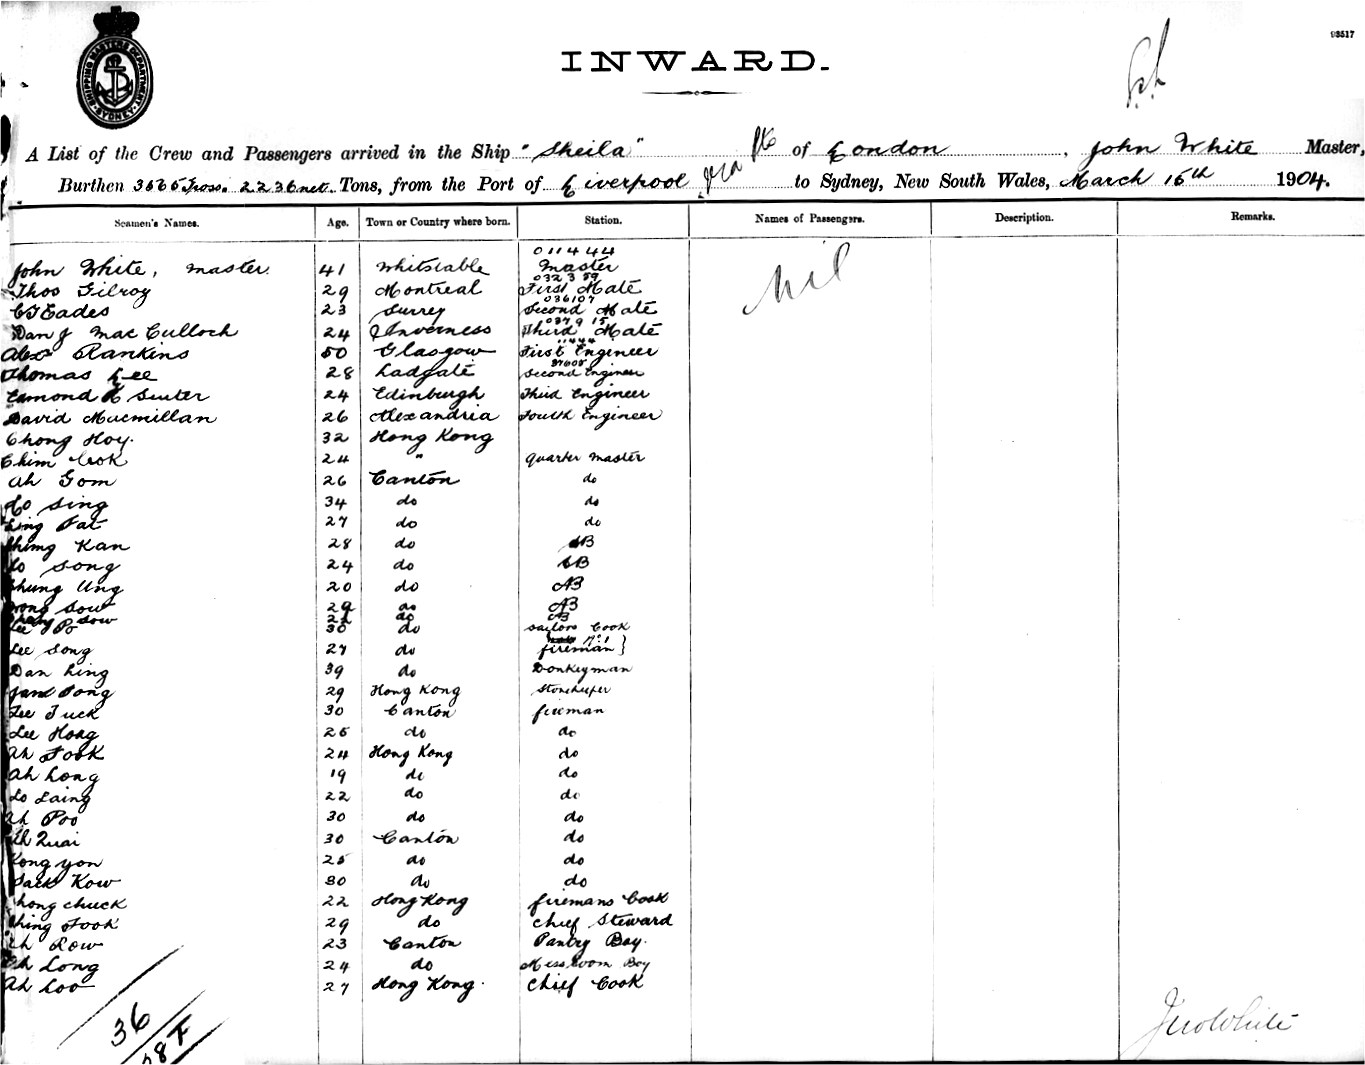 SHIPPING MASTERS DEPARTMENT SYDNEY
INWARD.
A List of the Crew and Passengers arrived in the Ship "Sheila" of London, John White Master,
Burthen 3565 Gross. 2236 net. Tons, from the Port of Liverpool via to Sydney, New South Wales, March 16th 1904.
Seamen's Names. Age. Town or Country where born. Station. Names of Passengers. Description. Remarks.
011444
John White, master. 41 Whitstable Master Nil
032389
Thos Gilroy 29 Montreal First Mate
036107
Eades 23 Surrey Second Mate
Dan J MacCulloch 24 Inverness Third Mate
11444
Alex Rankins 50 Glasgow First Engineer
Thomas Lee 28 Ladgate Second Engineer
Edmond Suiter 24 Edinburgh Third Engineer
David Macmillan 26 Alexandria Fourth Engineer
Chong Hoy. 32 Hong Kong
Chim 24 " Quarter Master
Ah Gom 26 Canton do
Lo Sing 34 do do
Fat 27 do do
Kan 28 do AB
Lo Song 24 do AB
Chung Ung 20 do AB
Sow 29 do AB
Sow do AB
Lee Po 30 do Sailors Cook
No 1
Lee Song 27 do fireman }
Dan Ling 39 do Donkeyman
Tong 29 Hong Kong Storekeeper
Lee Tuck 30 Canton fireman
Lee Hong 25 do do
Ah Fook 24 Hong Kong do
Ah Long 19 do do
Lo Laing 22 do do
Ah Poo 30 do do
Ah Quai 30 Canton do
Kong Yon 25 do do
Kow 30 do do
Chong Chuck 22 Hong Kong firemans Cook
Ching Fook 29 do Chief Steward
Ah Row 23 Canton Pantry Boy.
Ah Long 24 do Mess room Boy
Ah Loo 27 Hong Kong. Chief Cook
36
Jno White